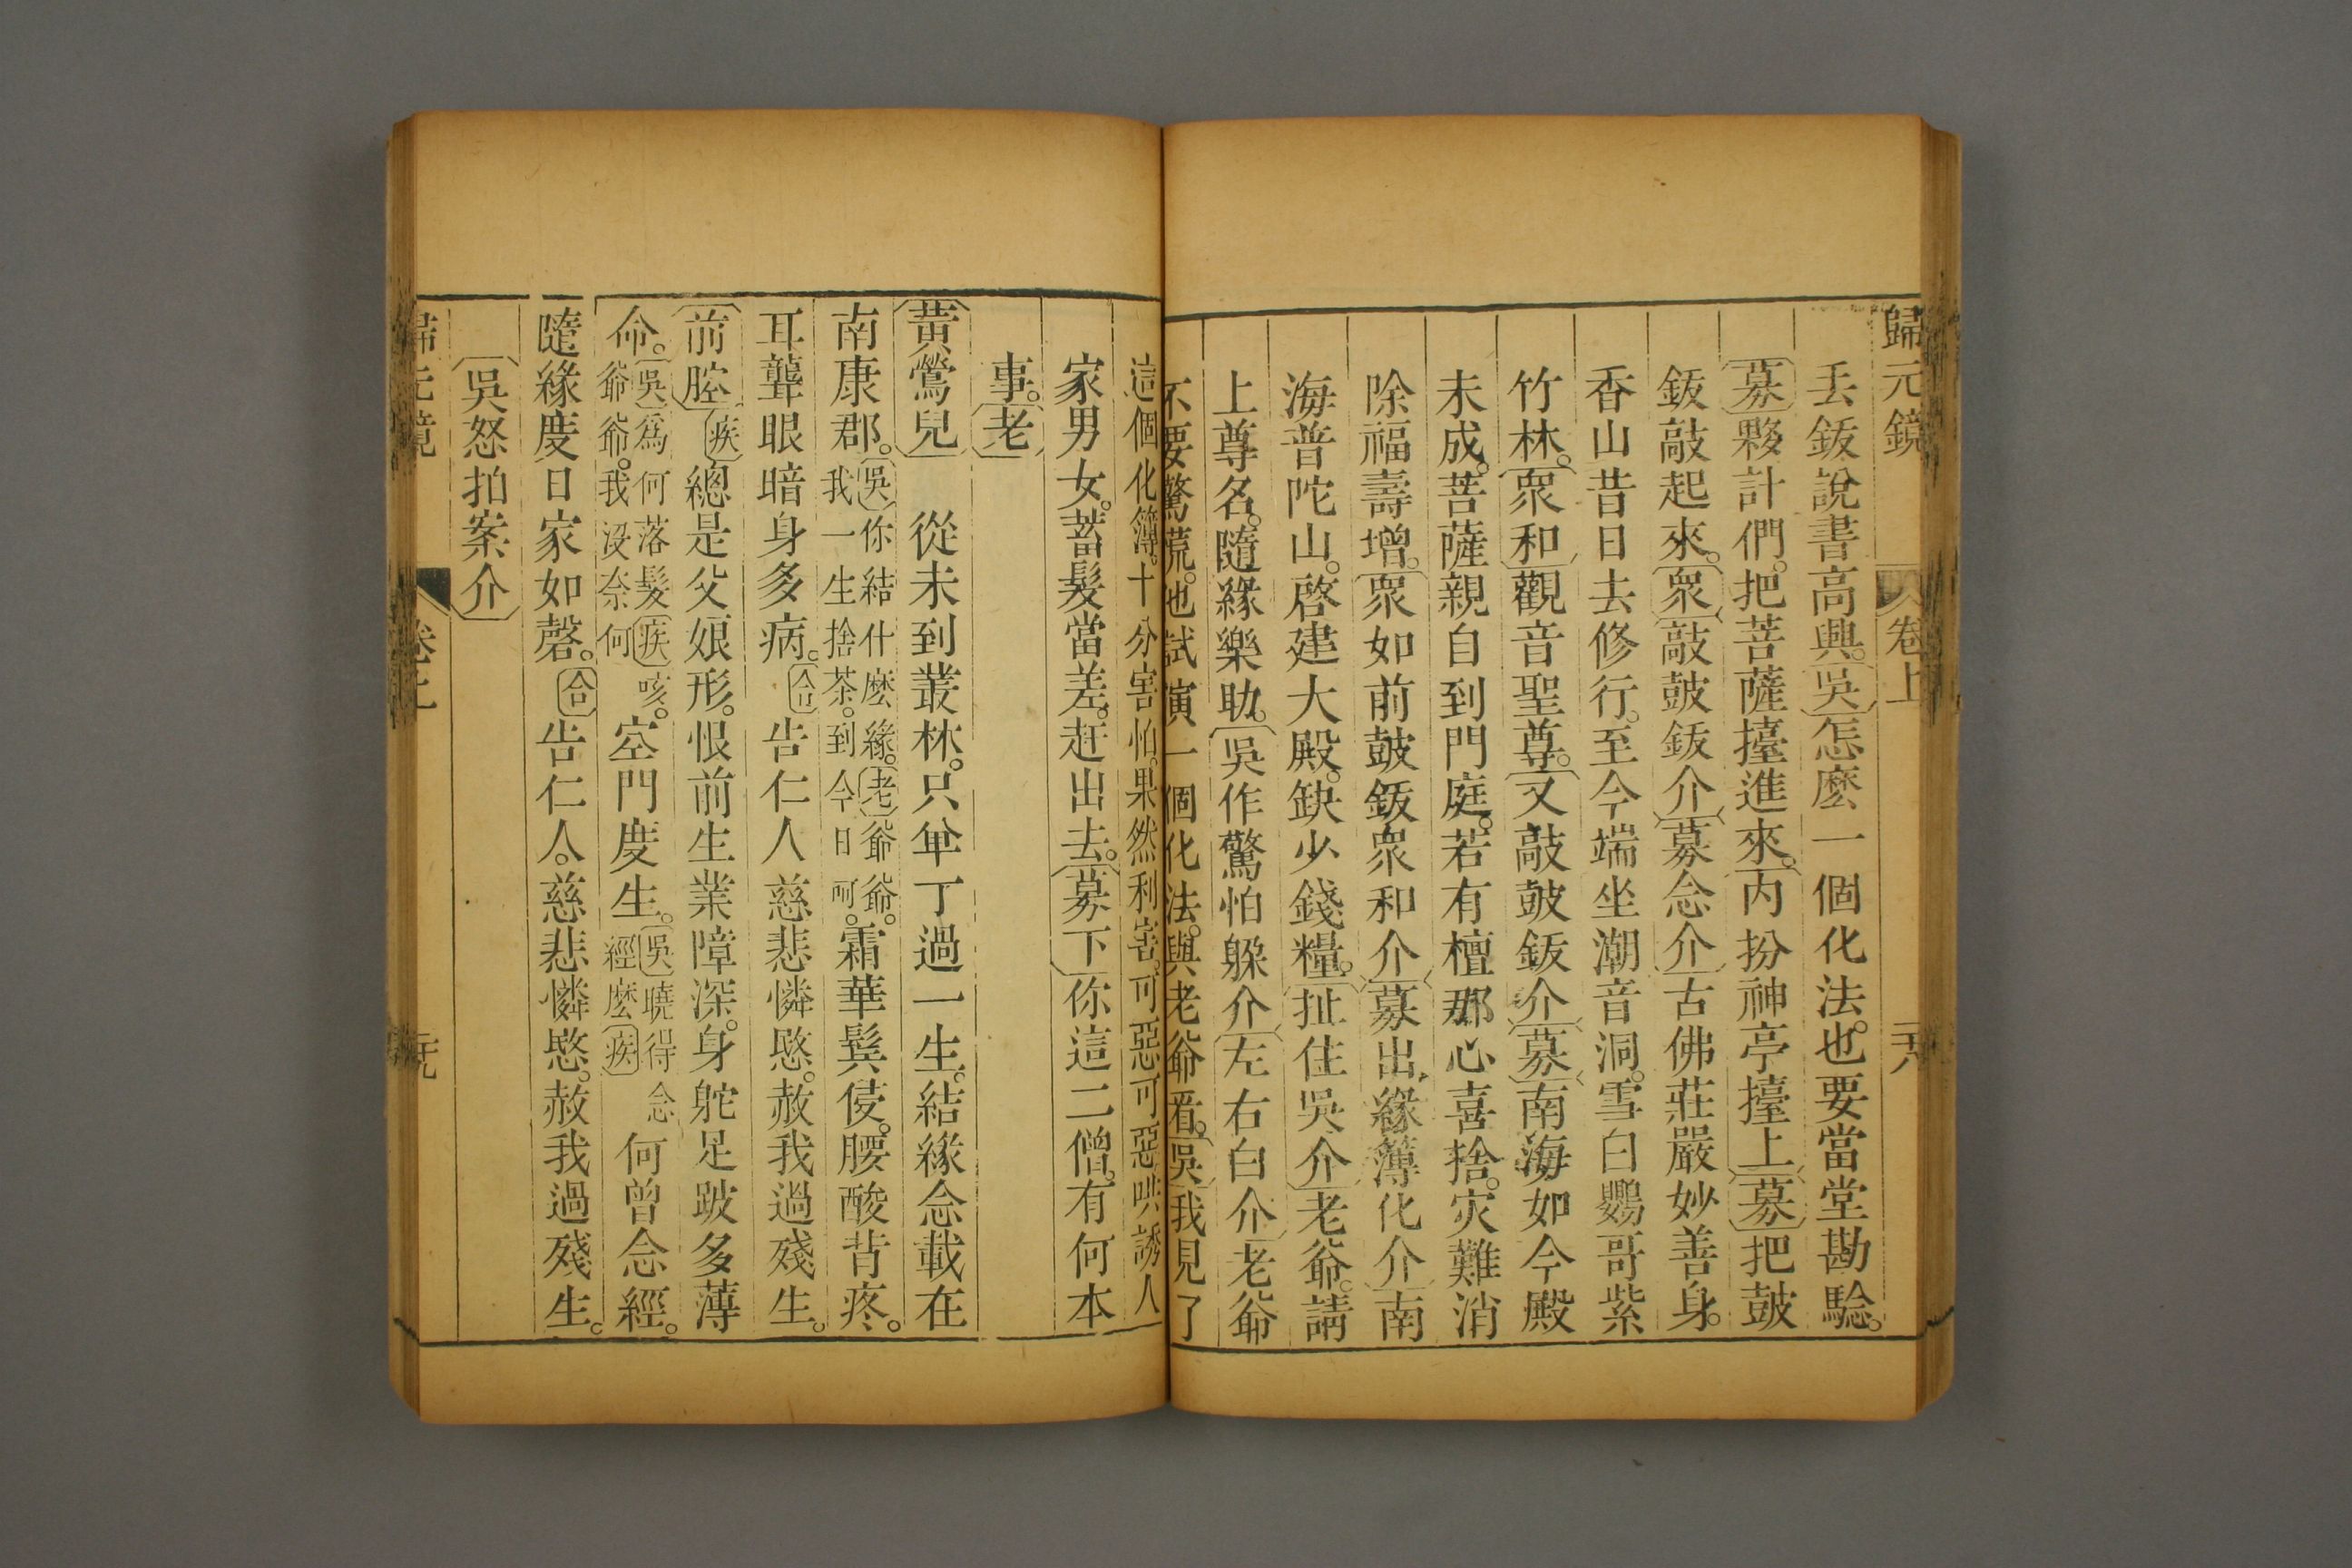 歸元鏡 卷上 六
丢鈸說書高興。吳怎麽一個化法。也要當堂勘驗。
募夥計們。把菩薩擡進來。內扮神亭擡上募把鼓
鈸敲起來。衆敲鼓鈸介募念介古佛莊嚴妙善身。
香山昔日去修行。至今端坐潮音洞。雪白鸚哥紫
竹林。衆和觀音聖尊。又敲鼓鈸介募南海如今殿
未成。菩薩親自到門庭。若有檀那心喜捨。灾難消
除福壽增。衆如前鼓鈸衆和介募出緣簿化介南
海普陀山。啓建大殿。缺少錢糧。扯住吳介老爺。請
上尊名。隨緣樂助。吳作驚怕躲介左右白介老爺
不要驚慌。也試演一個化法。與老爺看。吳我見了
這個化簿。十分害怕。果然利害。可惡可惡哄誘人
家男女。蓄髮當差。赶出去。募下你這二僧。有何本
事。老
黃鶯兒 從未到叢林。只单丁過一生。結緣念載在
南康郡。吳你結什麽緣。老爺爺。我一生捨茶。到今日呵。霜華鬂侵。腰酸背疼。
耳聾眼暗身多病。合告仁人慈悲憐愍。赦我過殘生。
前腔 疾總是父娘形。恨前生業障深。身躭足跛多薄
命。吳爲何落髮疾咳。爺爺。我没奈何空門度生。吳曉得念經麽疾何曾念經。
隨緣度日家如磬。合告仁人。慈悲憐愍。赦我過殘生。
吳怒拍案介
歸元鏡 卷上